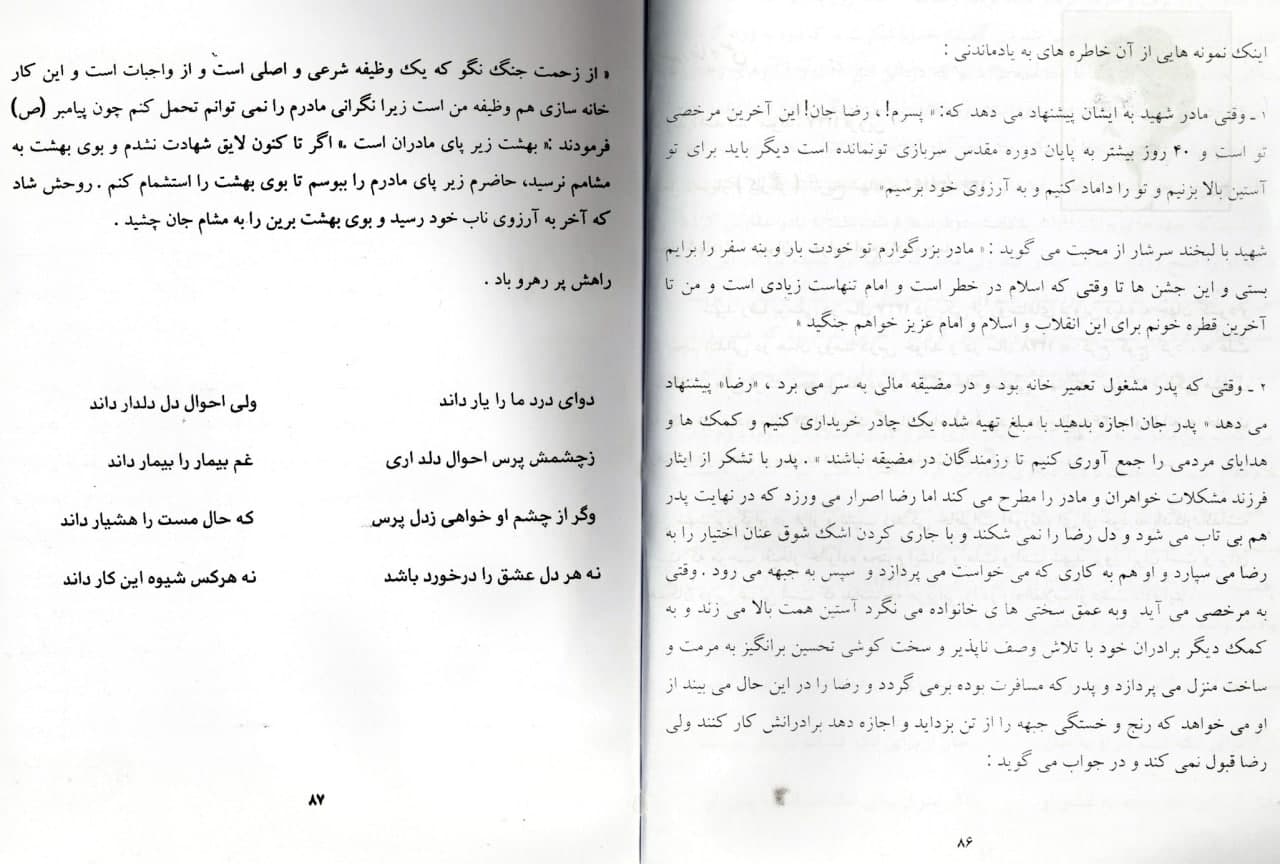 اینک نمونه هایی از آن خاطره های به یادماندنی :
۱ ـ وقتی مادر شهید به ایشان پیشنهاد می دهد که: « پسرم! ، رضا جان! این آخرین مرخصی
تو است و ۴۰ روز بیشتر به پایان دوره مقدس سربازی تونمانده است دیگر باید برای تو
آستین بالا بزنیم و تو را داماد کنیم و به آرزوی خود برسیم»
شهید با لبخند سرشار از محبت می گوید : « مادر بزرگوارم تو خودت بار و بنه سفر را برایم
بستی و این جشن ها تا وقتی که اسلام در خطر است و امام تنهاست زیادی است و من تا
آخرین قطره خونم برای این انقلاب و اسلام و امام عزیز خواهم جنگید »
۲ ـ وقتی که پدر مشغول تعمیر خانه بود و در مضیقه مالی به سر می برد ، «رضا» پیشنهاد
می دهد « پدر جان اجازه بدهید با مبلغ تهیه شده یک چادر خریداری کنیم و کمک ها و
هدایای مردمی را جمع آوری کنیم تا رزمندگان در مضیقه نباشند » . پدر با تشکر از ایثار
فرزند مشکلات خواهران و مادر را مطرح می کند اما رضا اصرار می ورزد که در نهایت پدر
هم بی تاب می شود و دل رضا را نمی شکند و با جاری کردن اشک شوق عنان اختیار را به
رضا می سپارد و او هم به کاری که می خواست می پردازد و سپس به جبهه می رود . وقتی
به مرخصی می آید وبه عمق سختی ها ی خانواده می نگرد آستین همت بالا می زند و به
کمک دیگر برادران خود با تلاش وصف ناپذیر و سخت کوشی تحسین برانگیز به مرمت و
ساخت منزل می پردازد و پدر که مسافرت بوده برمی گردد و رضا را در این حال می بیند از
او می خواهد که رنج و خستگی جبهه را از تن بزداید و اجازه دهد برادرانش کار کنند ولی
رضا قبول نمی کند و در جواب می گوید :
۸۶
« از زحمت جنگ نگو که یک وظیفه شرعی و اصلی است و از واجبات است و این کار
خانه سازی هم وظیفه من است زیرا نگرانی مادرم را نمی توانم تحمل کنم چون پیامبر (ص)
فرمودند :« بهشت زیر پای مادران است .» اگر تا کنون لایق شهادت نشدم و بوی بهشت به
مشامم نرسید، حاضرم زیر پای مادرم را ببوسم تا بوی بهشت را استشمام کنم . روحش شاد
که آخر به آرزوی ناب خود رسید و بوی بهشت برین را به مشام جان چشید .
راهش پر رهرو باد .
دوای درد ما را یار داند ولی احوال دل دلدار داند
زچشمش پرس احوال دلد اری غم بیمار را بیمار داند
وگر از چشم او خواهی زدل پرس که حال مست را هشیار داند
نه هر دل عشق را درخورد باشد نه هرکس شیوه این کار داند
۸۷